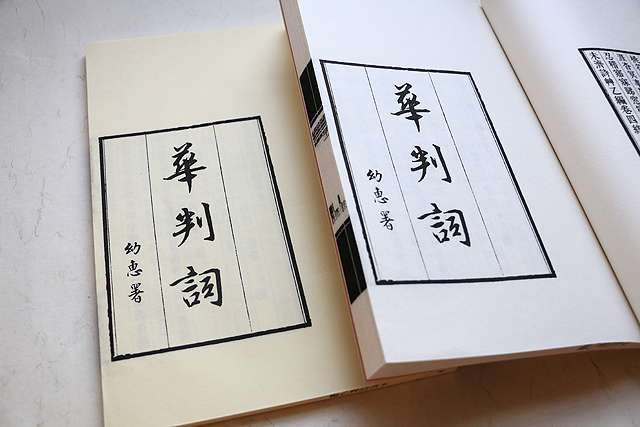 華判詞
幼惠署
華判詞
幼惠署